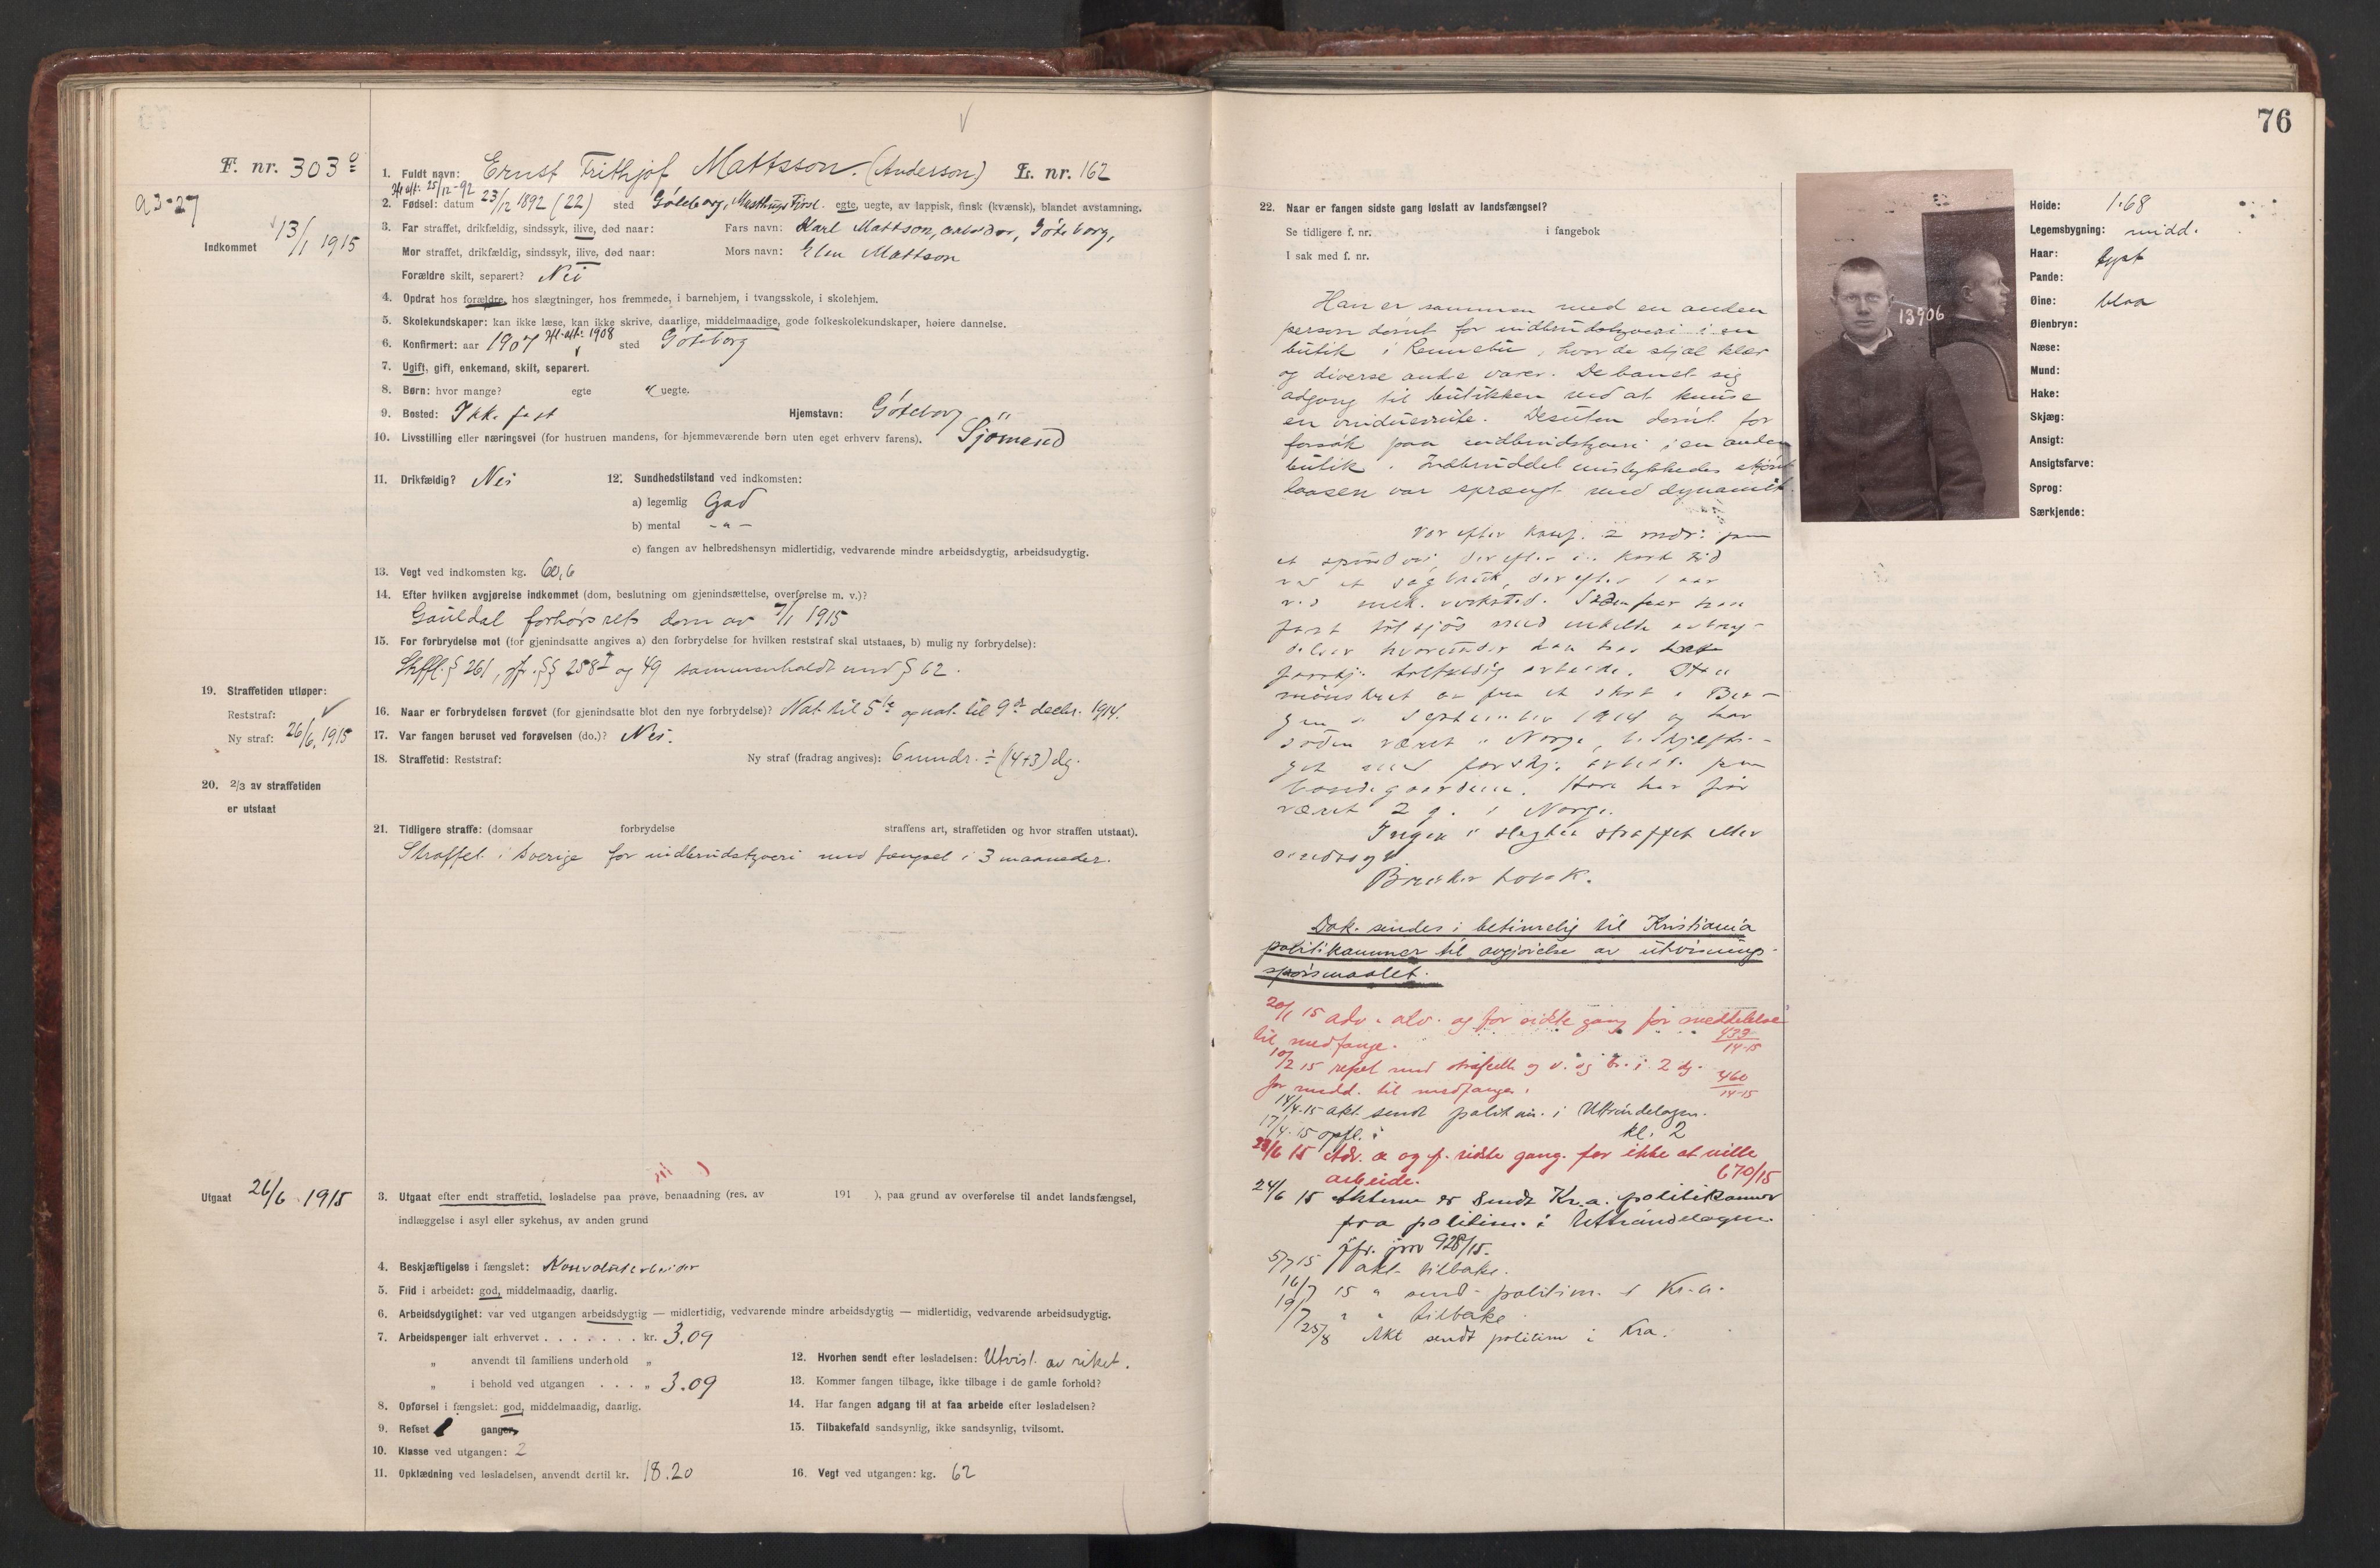 F. nr. 303
a3-27
Indkommet 13/1 1915
1. Fuldt navn: Ernst Frithjof Mattsson. (Anderson) L. nr. 162
2. Fødsel: datum 23/12 1892 (22) sted Göteborg, egte, uegte, av lappisk, finsk (kvænsk), blandet avstamning.
25/12-92
3. Far straffet, drikfældig, sindssyk, ilive, død naar: Fars navn: Karl Mattson, arbeider, Göteborg,
Mor straffet, drikfældig, sindssyk, ilive, død naar: Mors navn: Elen Mattson
Forældre skilt, separert? Nei
4. Opdrat hos forældre, hos slægtninger, hos fremmede, i barnehjem, i tvangsskole, i skolehjem.
5. Skolekundskaper: kan ikke læse, kan ikke skrive, daarlige, middelmaadige, gode folkeskolekundskaper, høiere dannelse.
6. Konfirmert: aar 1907 1908 sted Göteborg
7. Ugift, gift, enkemand, skilt, separert.
8. Børn: hvor mange? egte uegte.
9. Bosted: Ikke fast Hjemstavn: Göteborg
10. Livsstilling eller næringsvei (for hustruen mandens, for hjemmeværende børn uten eget erhverv farens). Sjømand
11. Drikfældig? Nei 12. Sundhedstilstand ved indkomsten:
a) legemlig God
b) mental - " -
c) fangen av helbredshensyn midlertidig, vedvarende mindre arbeidsdygtig, arbeidsudygtig.
13. Vegt ved indkomsten kg. 60,6
14. Efter hvilken avgjørelse indkommet (dom, beslutning om gjenindsættelse, overførelse m. v.)?
Gauldal forhørsrets dom av 7/1 1915
15. For forbrydelse mot (for gjenindsatte angives a) den forbrydelse for hvilken reststraf skal utstaaes, b) mulig ny forbrydelse):
Strffl. § 261, jfr. §§ 258 I og 49 sammenholdt med § 62.
19. Straffetiden utløper:
Reststraf:
Ny straf: 26/6 1915
16. Naar er forbrydelsen forøvet (for gjenindsatte blot den nye forbrydelse)? Nat til 5te og nat til 9de decbr. 1914.
17. Var fangen beruset ved forøvelsen (do.)? Nei.
18. Straffetid: Reststraf: Ny straf (fradrag angives): 6 mndr. ÷ (14+3) dg.
20. 2/3 av straffetiden
er utstaat
21. Tidligere straffe: (domsaar forbrydelse straffens art, straffetiden og hvor straffen utstaat).
Straffet i Sverige for indbrudstyveri med fængsel i 3 maaneder.
Utgaat 26/6 1915
3. Utgaat efter endt straffetid, løsladelse paa prøve, benaadning (res. av 191 ), paa grund av overførelse til andet landsfængsel,
indlæggelse i asyl eller sykehus, av anden grund
4. Beskjæftigelse i fængslet: Konvolutarbeider
5. Flid i arbeidet: god, middelmaadig, daarlig.
6. Arbeidsdygtighet: var ved utgangen arbeidsdygtig — midlertidig, vedvarende mindre arbeidsdygtig — midlertidig, vedvarende arbeidsudygtig.
7. Arbeidspenger ialt erhvervet . . . . . . . kr. 3.09
„ anvendt til familiens underhold „
„ i behold ved utgangen . . . . „ 3.09
8. Opførsel i fængslet: god, middelmaadig, daarlig.
9. Refset 1 ganger,
10. Klasse ved utgangen: 2
11. Opklædning ved løsladelsen, anvendt dertil kr. 18.20
12. Hvorhen sendt efter løsladelsen: Utvist av riket.
13. Kommer fangen tilbage, ikke tilbage i de gamle forhold?
14. Har fangen adgang til at faa arbeide efter løsladelsen?
15. Tilbakefald sandsynlig, ikke sandsynlig, tvilsomt.
16. Vegt ved utgangen: kg. 62
76
22. Naar er fangen sidste gang løslatt av landsfængsel?
Se tidligere f. nr. i fangebok
I sak med f. nr.
Han er sammen med en anden
person dømt for indbrudstyveri i en
butik i Rennebu, hvor de stjal klær
og diverse andre varer. De banet sig
adgang til butikken ved at knuse
en vinduesrute. Desuten dømt for
forsøk paa indbrudstyveri i en anden
butik. Indbruddet mislykkedes skjønt
laasen var sprængt med dynamit
Var efter konf. 2 mdr. paa
et spinderi, derefter en kort tid
ved et sagbruk, derefter 1 aar
ved mek. verksted. Siden faar han
fart tilsjøs med enkelte avbry-
delser hvorunder han har hat
forskj. tilfældig arbeide. Han
mønstret av fra et skib i Ber-
gen i September 1914 og har
siden været i Norge, beskjæfti-
get med forskj. arbeide paa
bondegaardene. Han har før
været 2 g. i Norge.
Ingen i slegten straffet eller
sindssyk
Bruker tobak.
Dok. sendes i betimelig til Kristiania
politikammer til avgjørelse av utvisnings-
spørsmaalet.
20/1 15 adv. alv. og for sidste gang for meddelelse
til medfange. 433/14-15
10/2 15 refset med strafcelle og v. og br. i 2 dg.
for medd. til medfange. 460/14-15
14/4-15 akt. sendt politm. i Uttrøndelagen.
17/4-15 opfl. i kl. 2
23/6 15 Adv. a. og f. sidste gang. for ikke at ville
arbeide. 670/15
24/6 15 Akterne er sendt Kr.a. politikammer
fra politim. i Uttrøndelagen.
jfr. jnr 928/15.
5/7 15 akt. tilbake.
16/7 15 " send. politim. i Kr.a.
19/7 " " tilbake
25/8 Akt sendt politim i Kra.
13906
Høide: 1.68
Legemsbygning: midd.
Haar: lyst
Pande:
Øine: blaa
Øienbryn:
Næse:
Mund:
Hake:
Skjæg:
Ansigt:
Ansigtsfarve:
Sprog:
Særkjende: